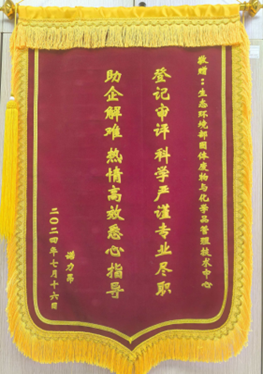 敬赠：生态环境部固体废物与化学品管理技术中心
登记审评 科学严谨专业尽职
助企解难 热情高效悉心指导
诺力昂
二〇二四年七月十六日